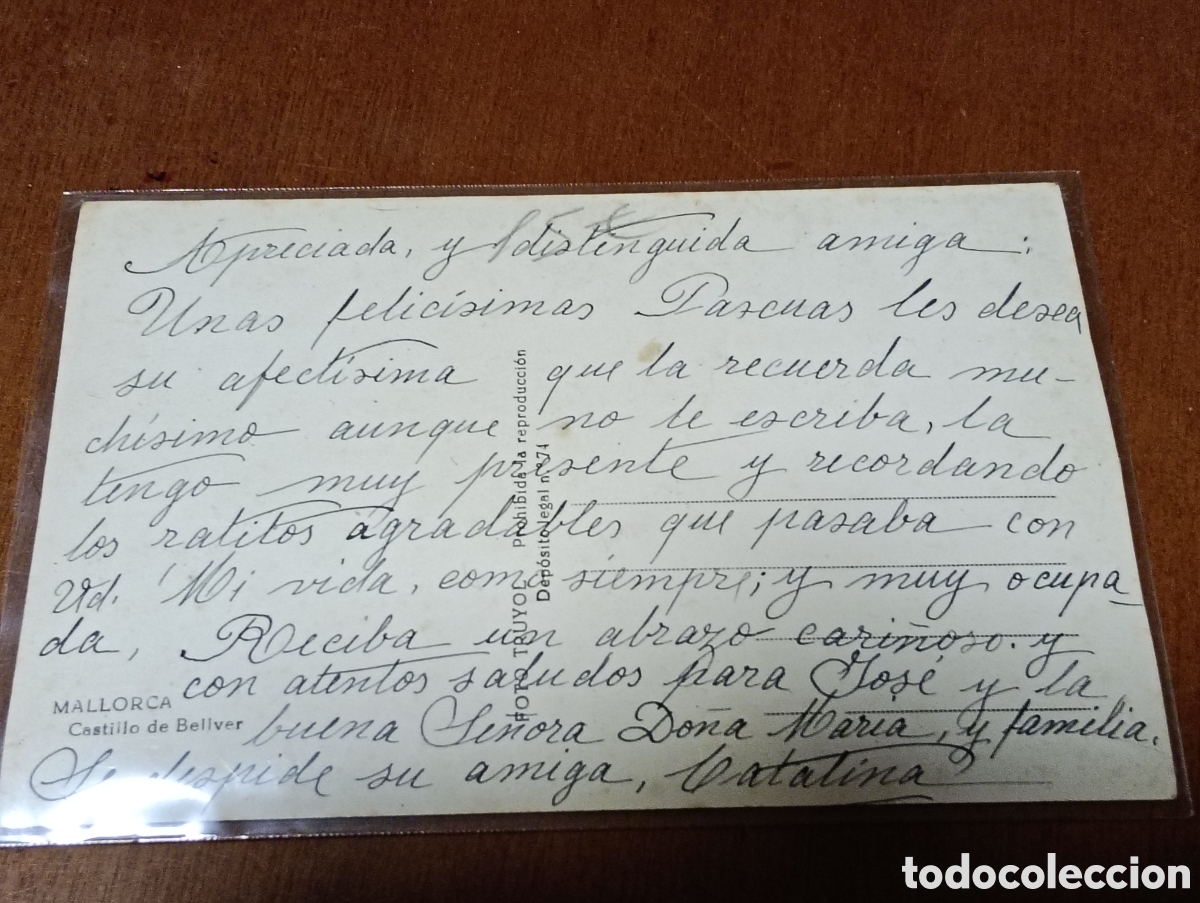 Apreciada, y distinguida amiga:
Unas felicísimas Pascuas les desea
su afectísima que la recuerda mu-
chísimo aunque no le escriba, la
tengo muy presente y recordando
los ratitos agradables que pasaba con
Vd. Mi vida, como siempre; y muy ocupa-
da, Reciba un abrazo cariñoso. y
con atentos saludos para José y la
buena Señora Doña María, y familia.
Se despide su amiga, Catalina
MALLORCA
Castillo de Bellver
FOTO TRUYOL Prohibida la reproducción
Depósito legal n.º 674
todocoleccion